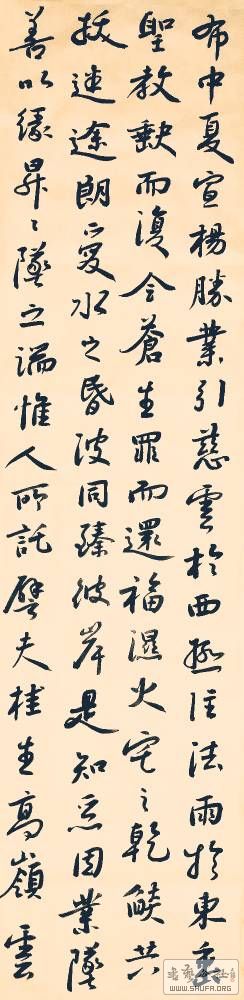 布中夏宣楊勝業引慈雲於西極注法雨於東垂
聖教缺而復全蒼生罪而還福濕火宅之乾燄共
拔迷途朗愛水之昏波同臻彼岸是知惡因業墜
善以緣昇々墜之端惟人所託譬夫桂生高嶺雲
WWW.SHUFA.COM